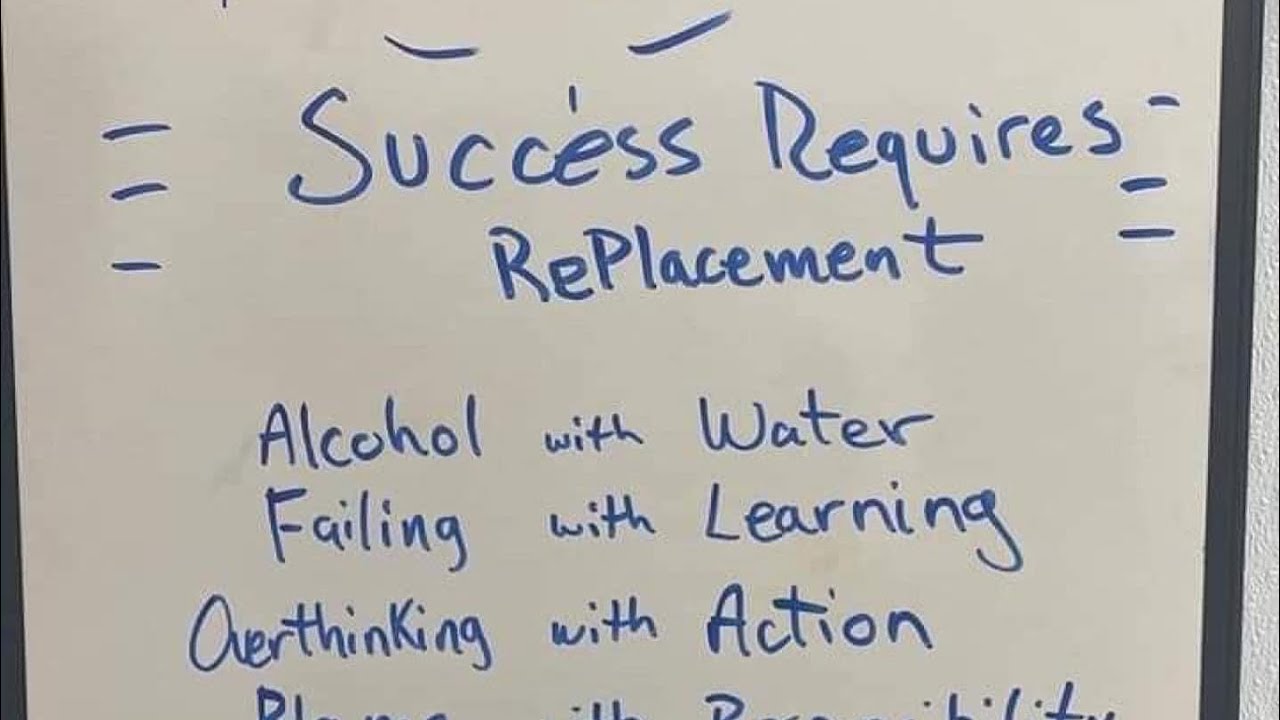 Success Requires
RePlacement
Alcohol with Water
Failing with Learning
Overthinking with Action
Blame with Responsibility